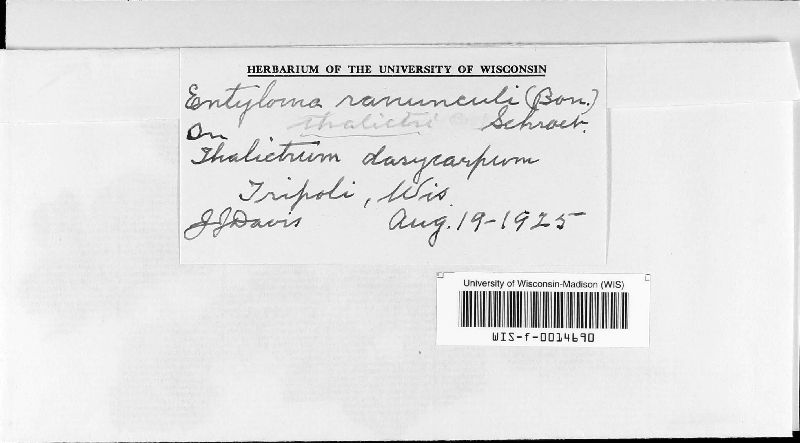 HERBARIUM OF THE UNIVERSITY OF WISCONSIN
Entyloma ranunculi (Bon.)
thalictri Schroet.
On
Thalictrum dasycarpum
Tripoli, Wis.
JJDavis Aug. 19-1925
University of Wisconsin-Madison (WIS)
WIS-f-0014690